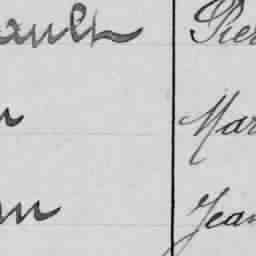 ault Pier
n Mar
nn Jean